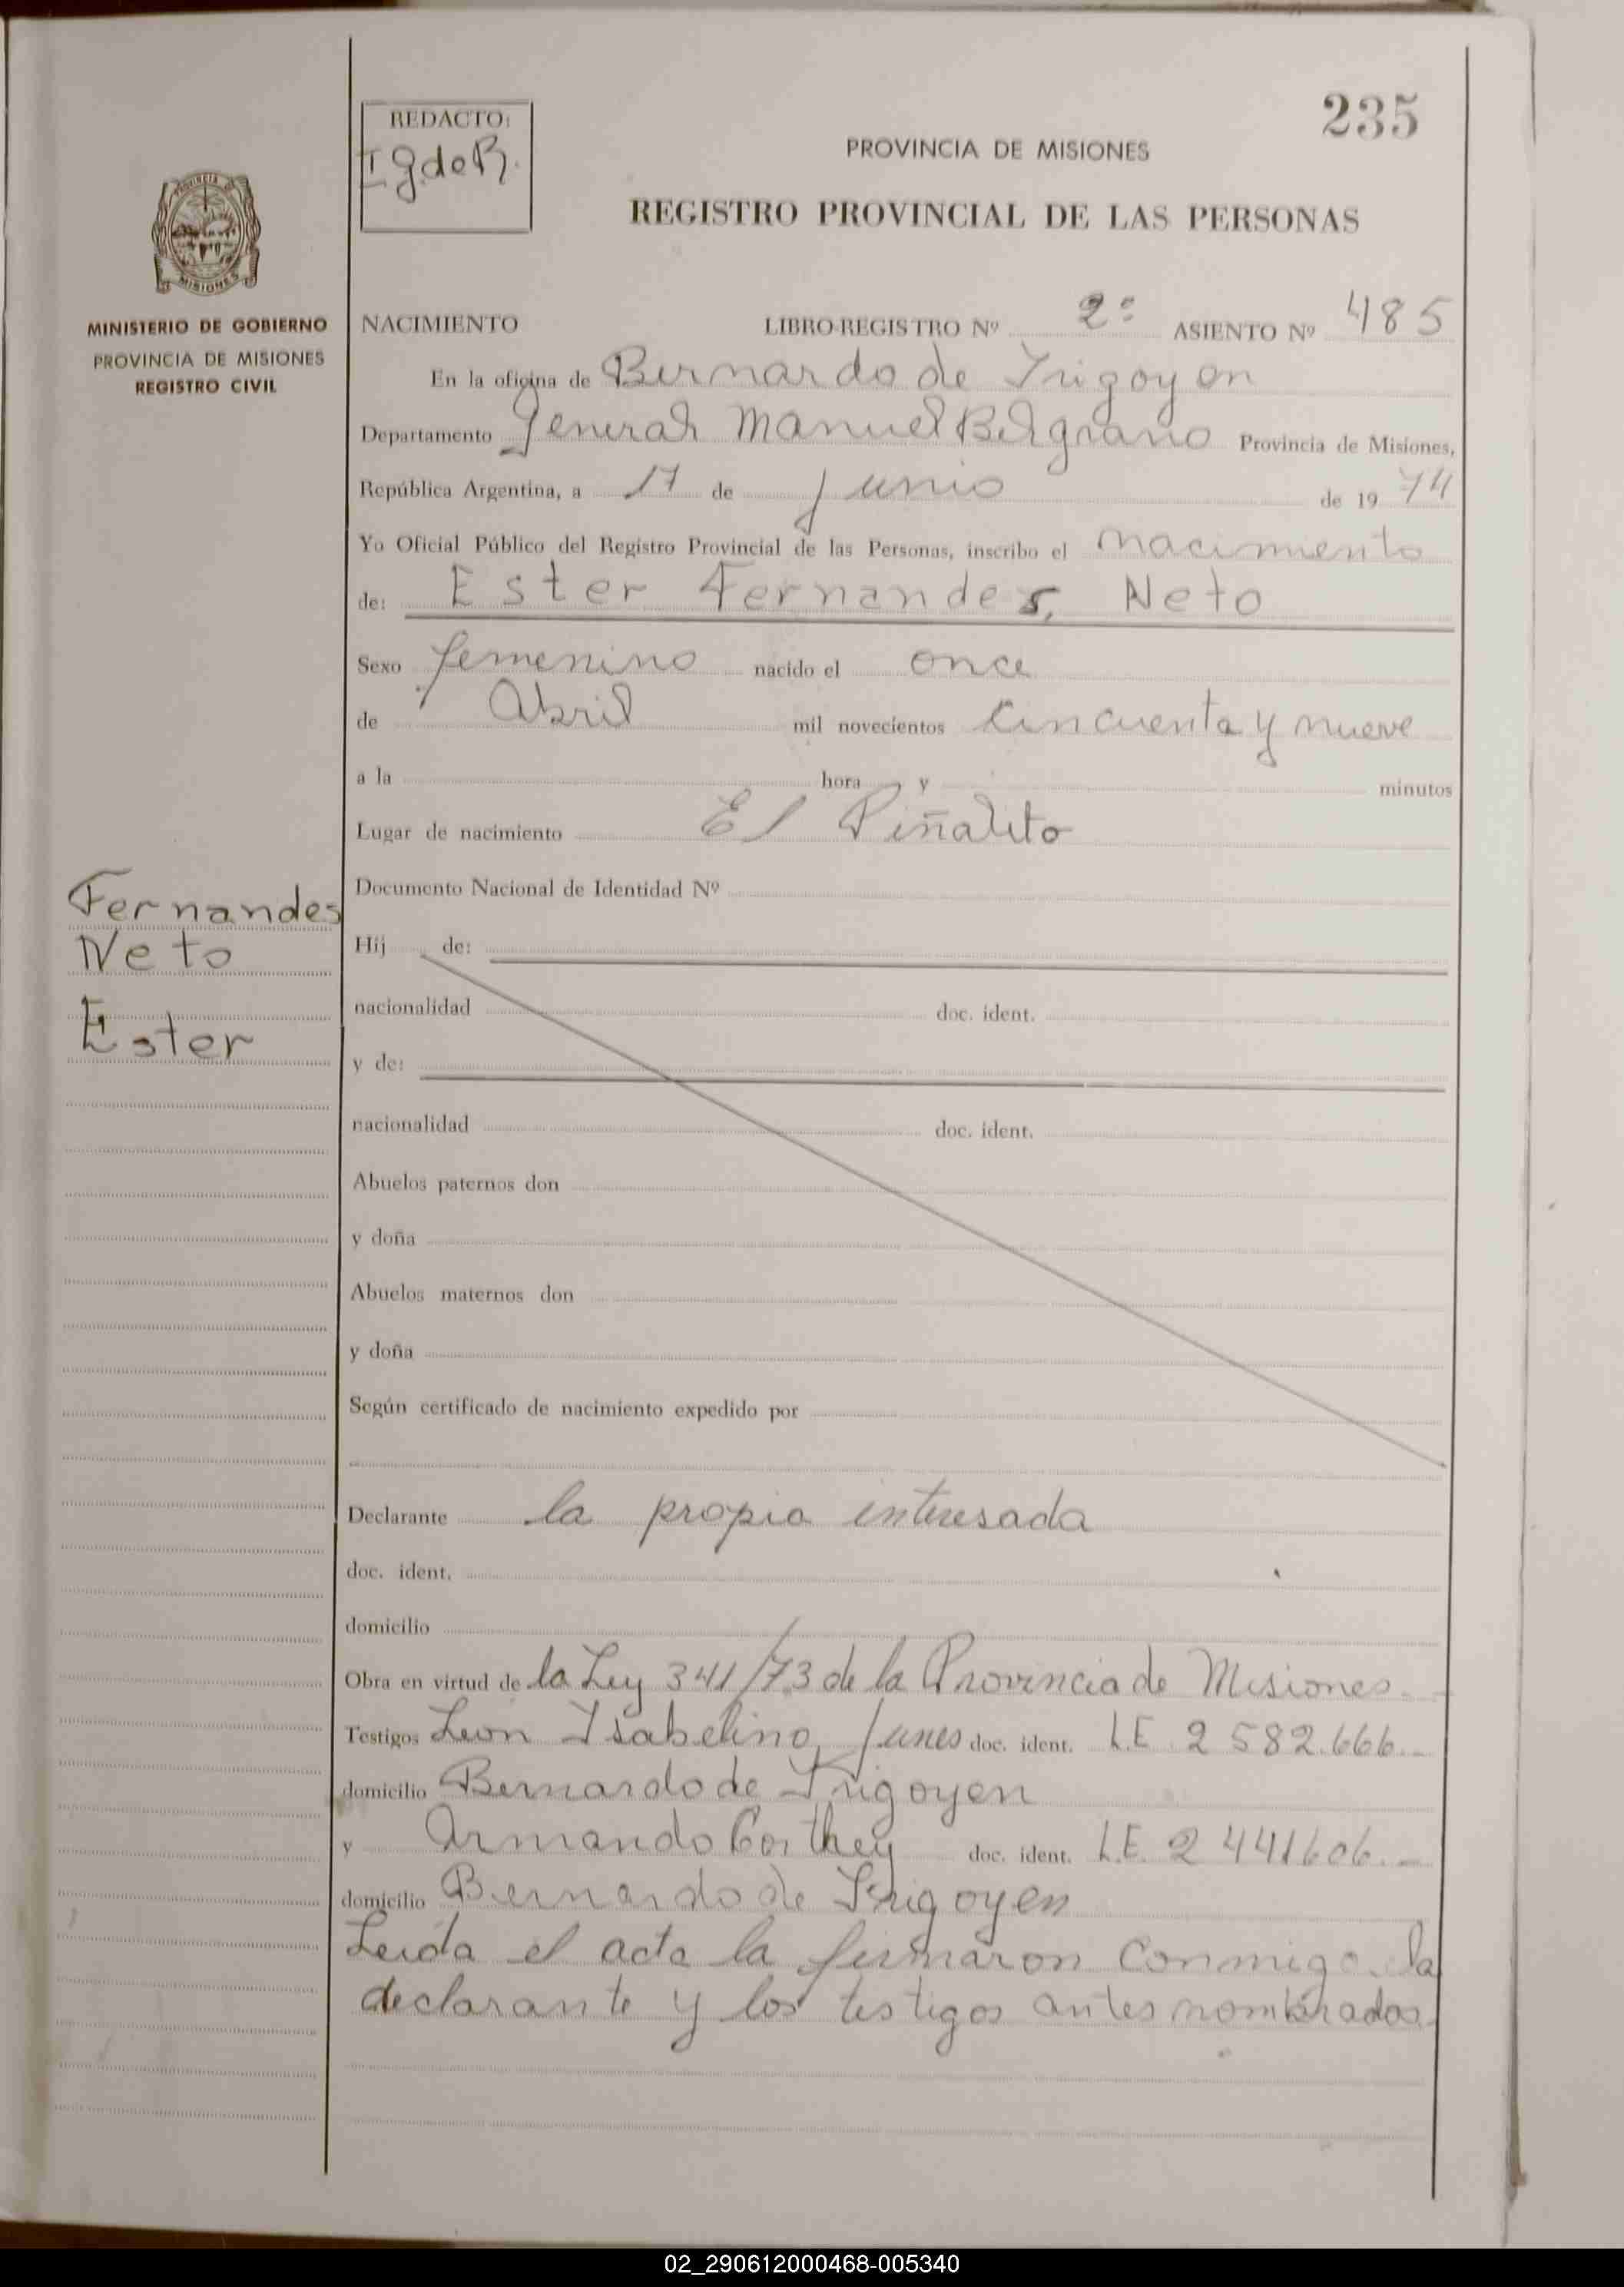 235
REDACTO:
I g. de R.
PROVINCIA DE MISIONES
REGISTRO PROVINCIAL DE LAS PERSONAS
PROVINCIA DE
MISIONES
MINISTERIO DE GOBIERNO
PROVINCIA DE MISIONES
REGISTRO CIVIL
NACIMIENTO LIBRO-REGISTRO Nº 2º ASIENTO Nº 485
En la oficina de Bernardo de Irigoyen
Departamento General Manuel Belgrano Provincia de Misiones,
República Argentina, a 17 de junio de 1974
Yo Oficial Público del Registro Provincial de las Personas, inscribo el nacimiento
de: Ester Fernandes, Neto
Sexo femenino nacido el once
de Abril mil novecientos cincuenta y nueve
a la hora y minutos
Lugar de nacimiento El Piñalito
Documento Nacional de Identidad Nº
Fernandes
Neto
Ester
Hij de:
nacionalidad doc. ident.
y de:
nacionalidad doc. ident.
Abuelos paternos don
y doña
Abuelos maternos don
y doña
Según certificado de nacimiento expedido por
Declarante la propia interesada
doc. ident.
domicilio
Obra en virtud de la Ley 341/73 de la Provincia de Misiones.
Testigos Leon Isabelino Junes doc. ident. L.E. 2 582.666.-
domicilio Bernardo de Irigoyen
y Armando Corthey doc. ident. L.E. 2 441606.-
domicilio Bernardo de Irigoyen
Leida el acta la firmaron conmigo la
declarante y los testigos antes nombrados.
02_290612000468-005340